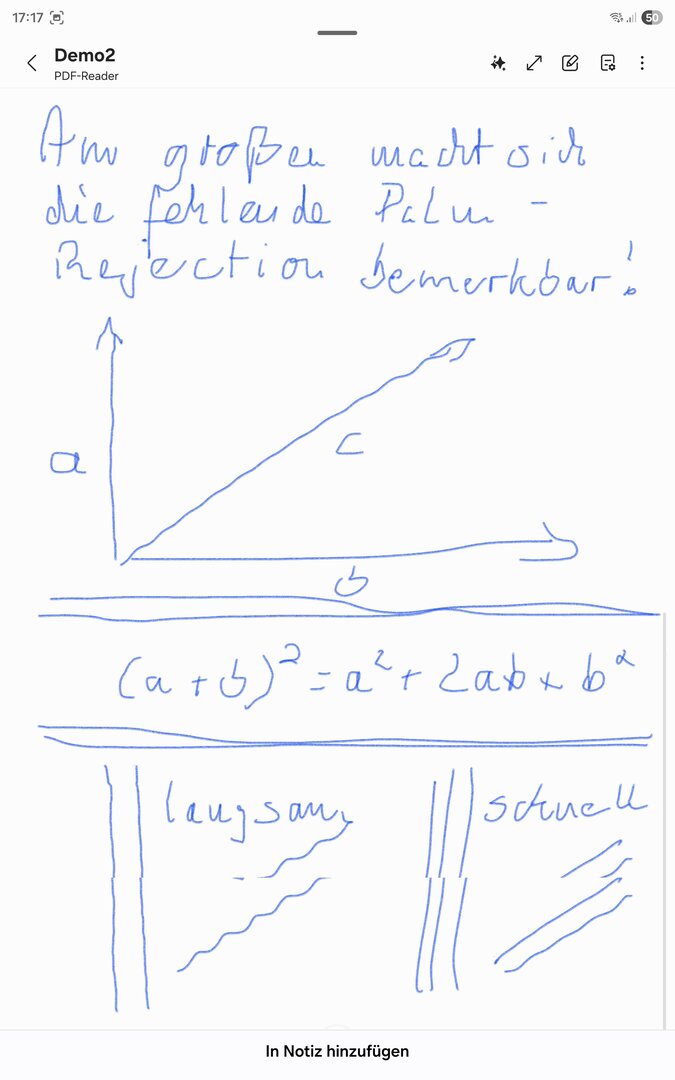 17:17
50
Demo2
PDF-Reader
Am großen macht sich
die fehlende Palm -
Rejection bemerkbar!
a
c
b
(a + b)² = a² + 2ab + b²
langsam
schnell
In Notiz hinzufügen